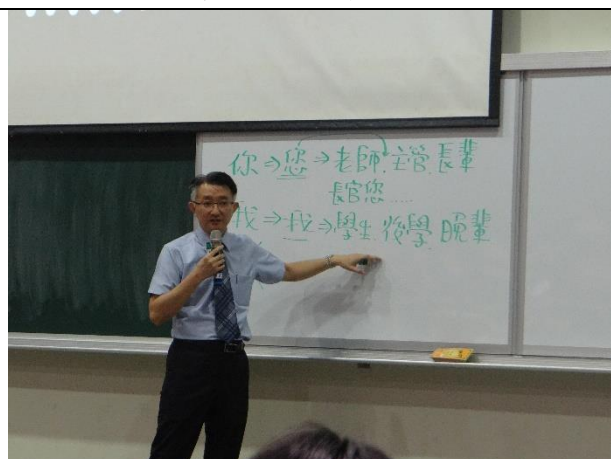 你⇒您⇒老師.主管.長輩
長官您.....
我⇒我⇒學生.後學.晚輩